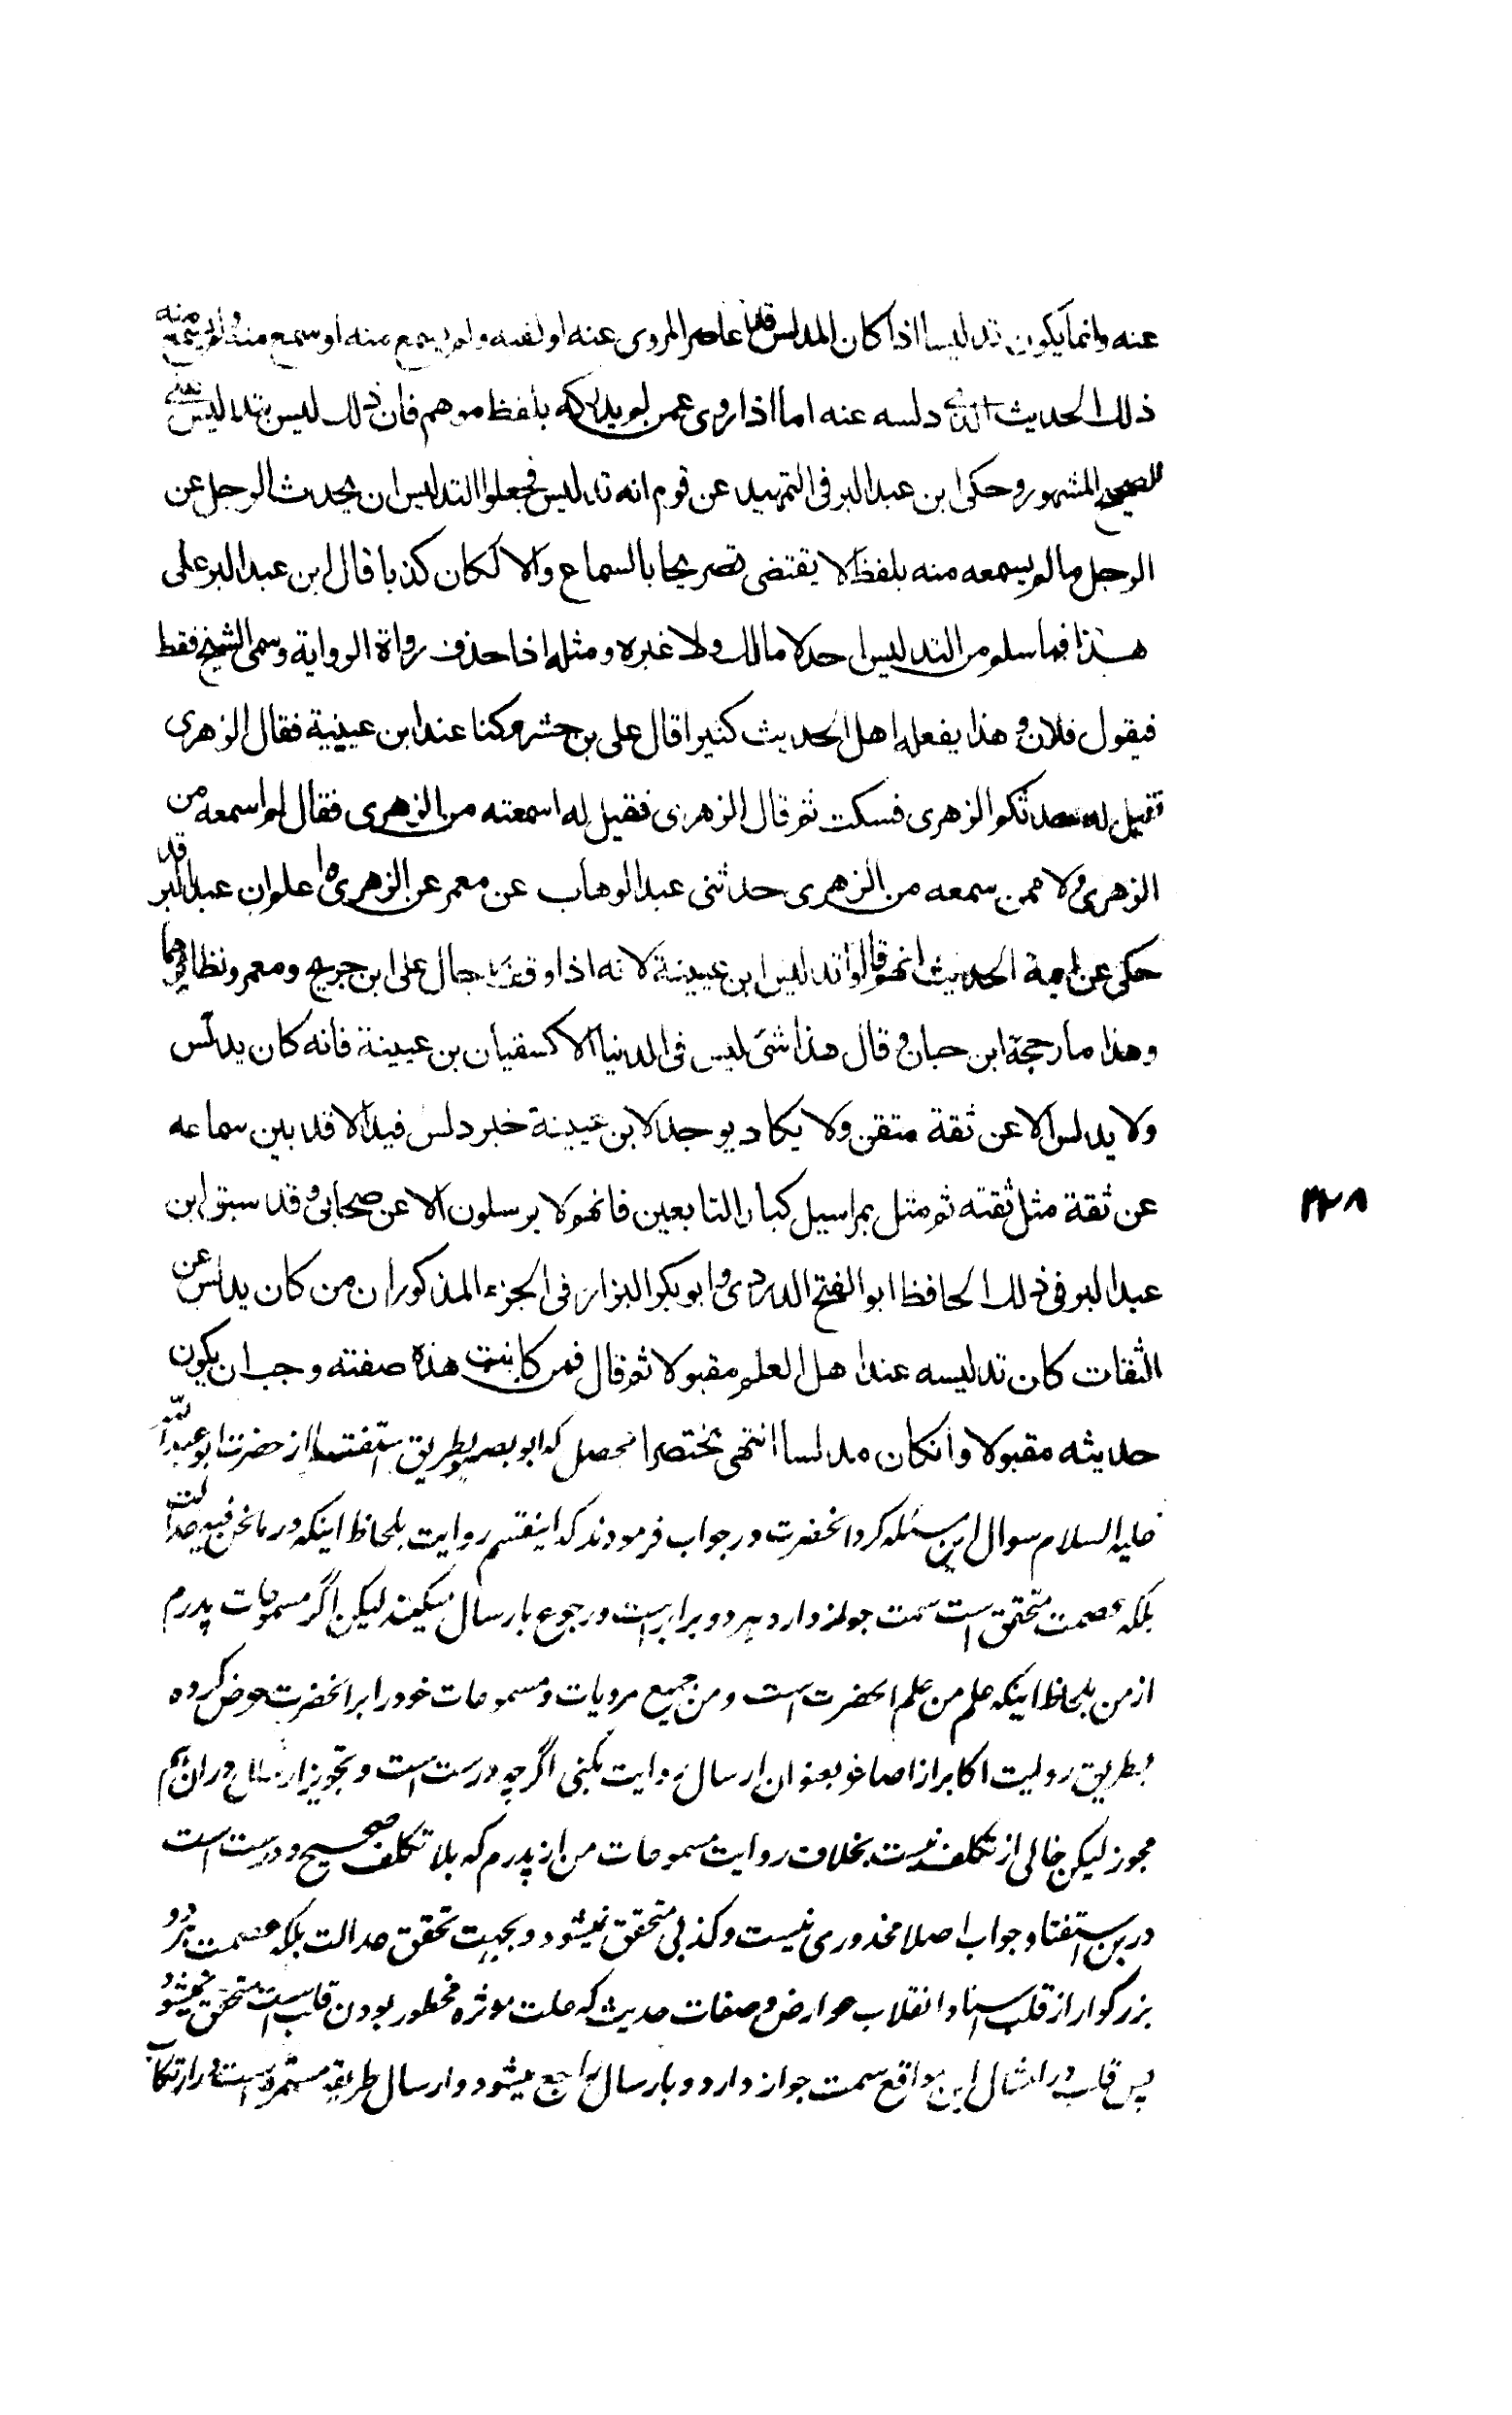 عنه وانما يكون تدليسا اذا كان المدلس قد عاصر المروى عنه او لقيه ولم يسمع منه او سمع منه ولم يسمع منه
ذلك الحديث الذى دلسه عنه اما اذا روى عمن لم يدركه بلفظ موهم فان ذلك ليس بتدليس على
الصحيح المشهور وحكى ابن عبد البر فى التمهيد عن قوم انه تدليس فجعلوا التدليس ان يحدث الرجل عن
الرجل ما لم يسمعه منه بلفظ لا يقتضى تصريحا بالسماع والا لكان كذبا قال ابن عبد البر على
هذا فما سلم من التدليس احد لا مالك ولا غيره ومثله اذا حذف رواة الرواية وسمى الشيخ فقط
فيقول فلان و هذا يفعله اهل الحديث كثيرا قال على بن خشرم كنا عند ابن عيينة فقال الزهرى
فقيل له حدثكم الزهرى فسكت ثم قال الزهرى فقيل له اسمعته من الزهرى فقال لم اسمعه من
الزهرى ولا ممن سمعه من الزهرى حدثنى عبد الوهاب عن معمر عن الزهرى واعلم ان عبد البر قد
حكى عن ايمة الحديث انهم قالوا تدليس ابن عيينة لانه اذا وقف احال على ابن جريج ومعمر ونظائرهما
وهذا ما رجحه ابن حبان و قال هذا شئ ليس فى الدنيا الا لسفيان بن عيينة فانه كان يدلس
ولا يدلس الا عن ثقة متقن ولا يكاد يوجد لابن عيينة خبر دلس فيه الا قد بين سماعه
عن ثقة مثل ثقته ثم مثل بمراسيل كبار التابعين فانهم لا يرسلون الا عن صحابى و قد سبق ابن
عبد البر فى ذلك الحافظ ابو الفتح الازدى و ابو بكر البزار فى الجزء المذكور ان من كان يدلس عن
الثقات كان تدليسه عند اهل العلم مقبولا ثم قال فمن كانت هذه صفته وجب ان يكون
حديثه مقبولا وانكان مدلسا انتهى مختصرا محصل كه ابو بصير بطريق استفتا از حضرت ابو عبد الله
عليه السلام سوال اين مسئله كرد انحضرت در جواب فرمودند كه اينقسم روايت بلحاظ اينكه در ما نحن فيه عدالت
بلكه عصمت متحقق است سمت جواز دارد هر دو برابر است و رجوع بارسال ميكند ليكن اگر مسموعات پدرم
از من بلحاظ اينكه علم من علم انحضرت است و من جميع مرويات و مسموعات خود را بر انحضرت عرض كرده
بطريق روايت اكابر از اصاغر بعنوان ارسال روايت بكنى اگرچه درست است و تجويز ارسال دران هم
مجوز ليكن خالى از تكلف نيست بخلاف روايت مسموعات من از پدرم كه بلا تكلف صحيح و درست است
درين استفتا و جواب اصلا محذورى نيست و كذبى متحقق نميشود و بجهت تحقق عدالت بلكه عصمت هر دو
بزرگوار از قلب اسناد انقلاب عوارض و صفات حديث كه علت موثره محظور بودن قلب است متحقق نميشود
پس قلب در امثال اين مواقع سمت جواز دارد و بارسال راجع ميشود و ارسال طريقه مستمره است و در ارتكاب
۳۴۸